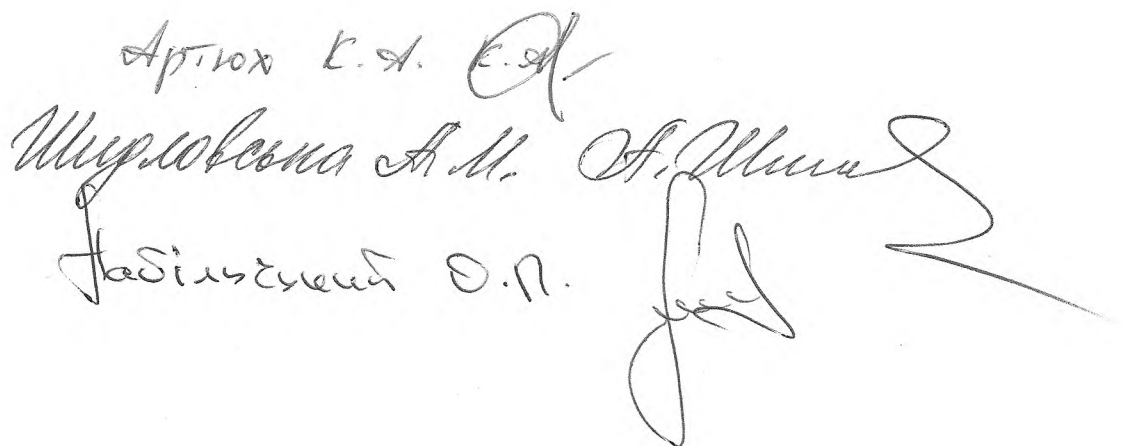 Артюх К.А. К.А.
Шидловська А.М. А. Шид
Набільський О.П.